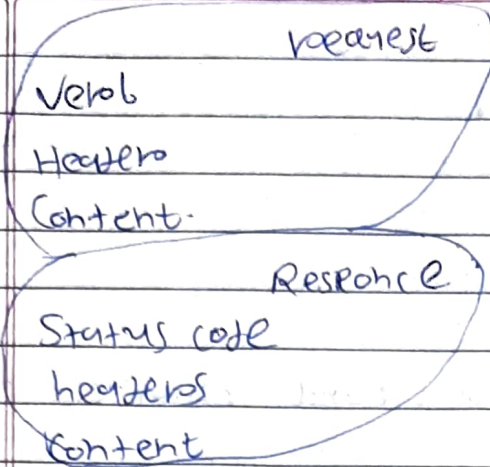 request
Verb
Headers
Content.
Responce
Status code
headers
Content